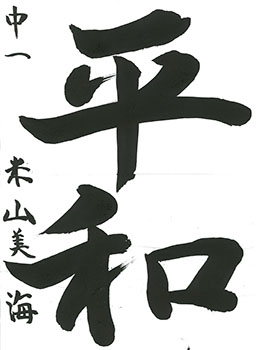 平和
中一 米山美海